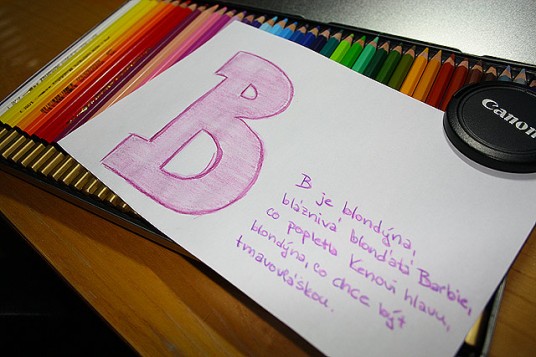 B
B je blondýna,
bláznivá blonďatá Barbie,
co popletla Kenovi hlavu,
blondýna, co chce být
tmavovláskou.
Canon